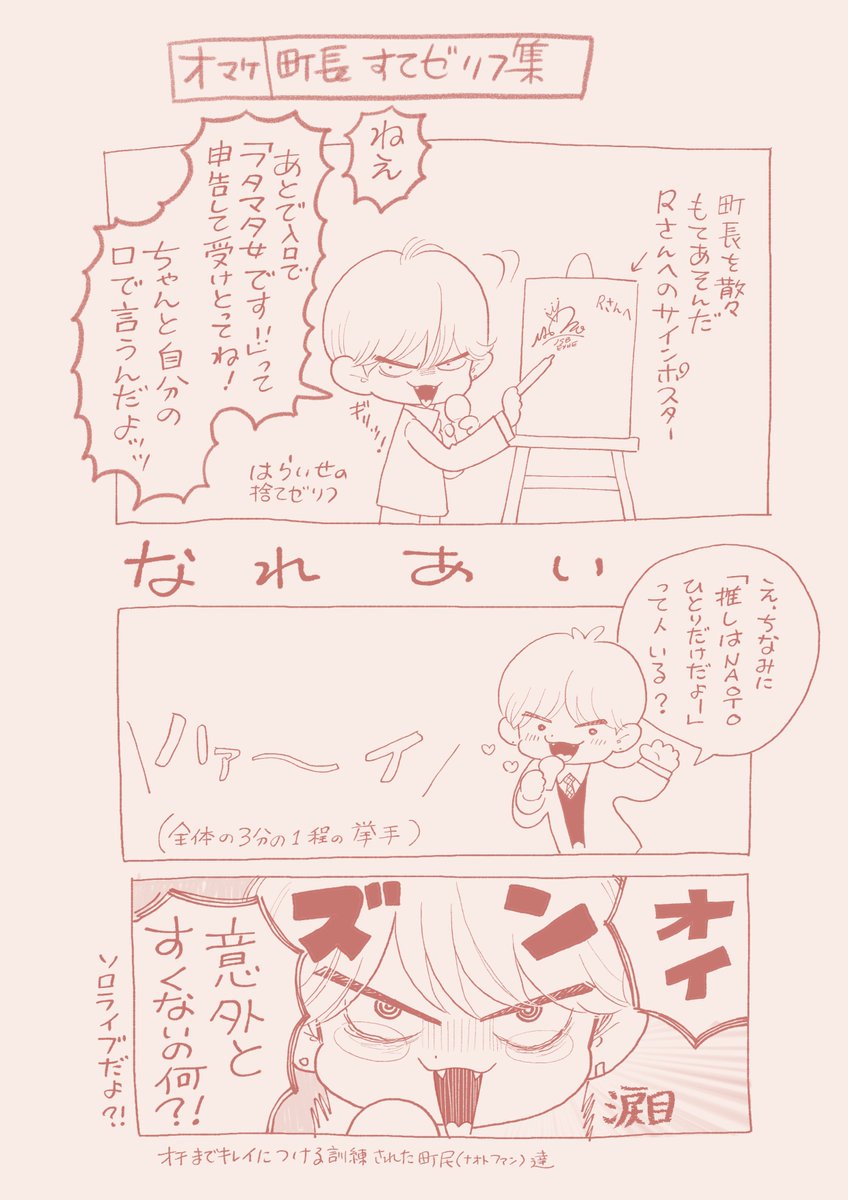 オマケ 町長 すてゼリフ集
ねえ
町長を散々
もてあそんだ
Rさんへのサインポスター
Rさんへ
JSB
EXILE
あとで入口で
「フタマタ女です!!」って
申告して受けとってね!
ちゃんと自分の
口で言うんだよッッ
ギリッッ!
はらいせの
捨てゼリフ
なれあい
え、ちなみに
「推しはNAOTO
ひとりだけだよー」
って人いる?
ハァ〜イ
(全体の3分の1程の挙手)
ズン
オイ
意外と
すくないの何?!
ソロライブだよ?!
涙目
オチまでキレイにつける訓練された町民(ナオトファン)達